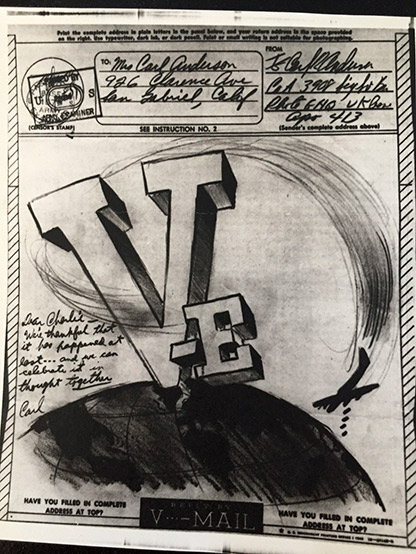 Print the complete address in plain letters in the panel below, and your return address in the space provided
on the right. Use typewriter, dark ink, or dark pencil. Faint or small writing is not suitable for photographing.
TO:
Mrs Carl Anderson
926 Clarence Ave
San Gabriel, Calif
FROM
Carl Anderson
Co A
APO 413
EXAMINER
(CENSOR'S STAMP)
SEE INSTRUCTION NO. 2
(Sender's complete address above)
VE
Dear Charlie—
We're thankful that
it has happened at
last... and we can
celebrate it in
thought together
Carl
HAVE YOU FILLED IN COMPLETE
ADDRESS AT TOP?
REPLY BY
V···—MAIL
HAVE YOU FILLED IN COMPLETE
ADDRESS AT TOP?